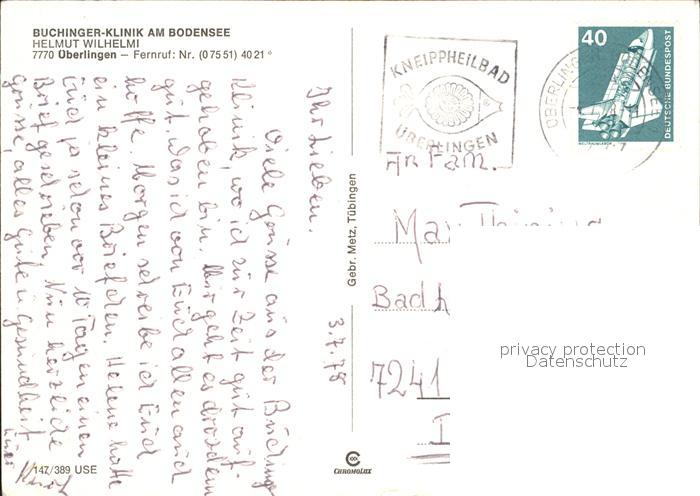 BUCHINGER-KLINIK AM BODENSEE
HELMUT WILHELMI
7770 Überlingen – Fernruf: Nr. (0 75 51) 40 21
Ihr Lieben.
Viele Grüsse aus der Buching
Klinik, wo ich zur Zeit gut auf-
gehoben bin. Mir geht es trotzdem
gut, was ich von Euch allen auch
hoffe. Morgen schreibe ich Euch
ein kleines Briefchen. Helene hatte
Euch ja schon vor 10 Tagen einen
Brief geschrieben. Nun herzliche
Grüsse, alles Gute u Gesundheit
Euer
3.7.78
147/389 USE
Gebr. Metz, Tübingen
CHROMOLUX
KNEIPPHEILBAD
ÜBERLINGEN
40
DEUTSCHE BUNDESPOST
WELTRAUMLABOR
An Fam.
Bad
7241
privacy protection
Datenschutz